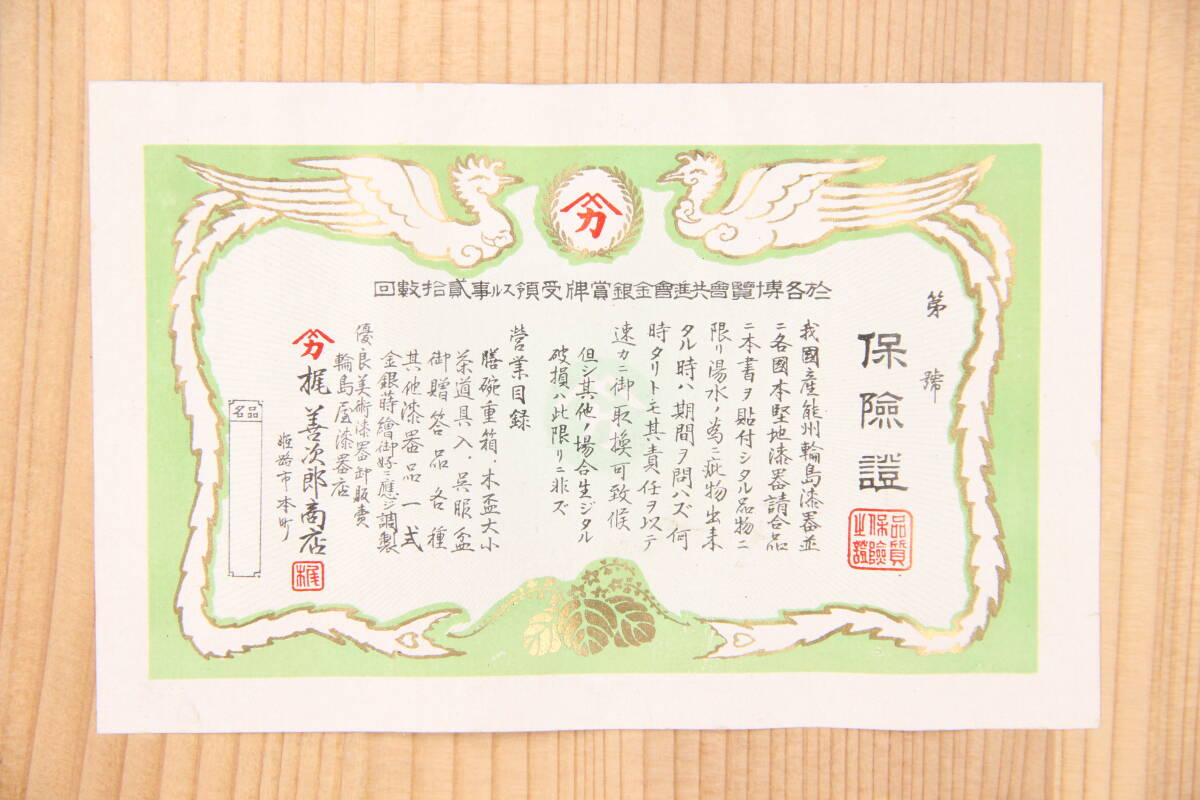 カ
於各博覽會共進會金銀賞牌受領スル事貳拾數回
第　號
保險證
品質
保險
之證
我國産能州輪島漆器並
ニ各國本堅地漆器請合品
ニ本書ヲ貼付シタル品物ニ
限リ湯水ノ為ニ疵物出来
タル時ハ期間ヲ問ハズ何
時タリトモ其責任ヲ以テ
速カニ御取換可致候
但シ其他ノ場合生ジタル
破損ハ此限リニ非ズ
營業目録
膳碗重箱、木盃大小
茶道具入、呉服盆
御贈答品各種
其他漆器品一式
金銀蒔繪御好ニ應ジ調製
優良美術漆器卸販賣
輪島屋漆器店
カ 梶善次郎商店
梶
姫路市本町
品名